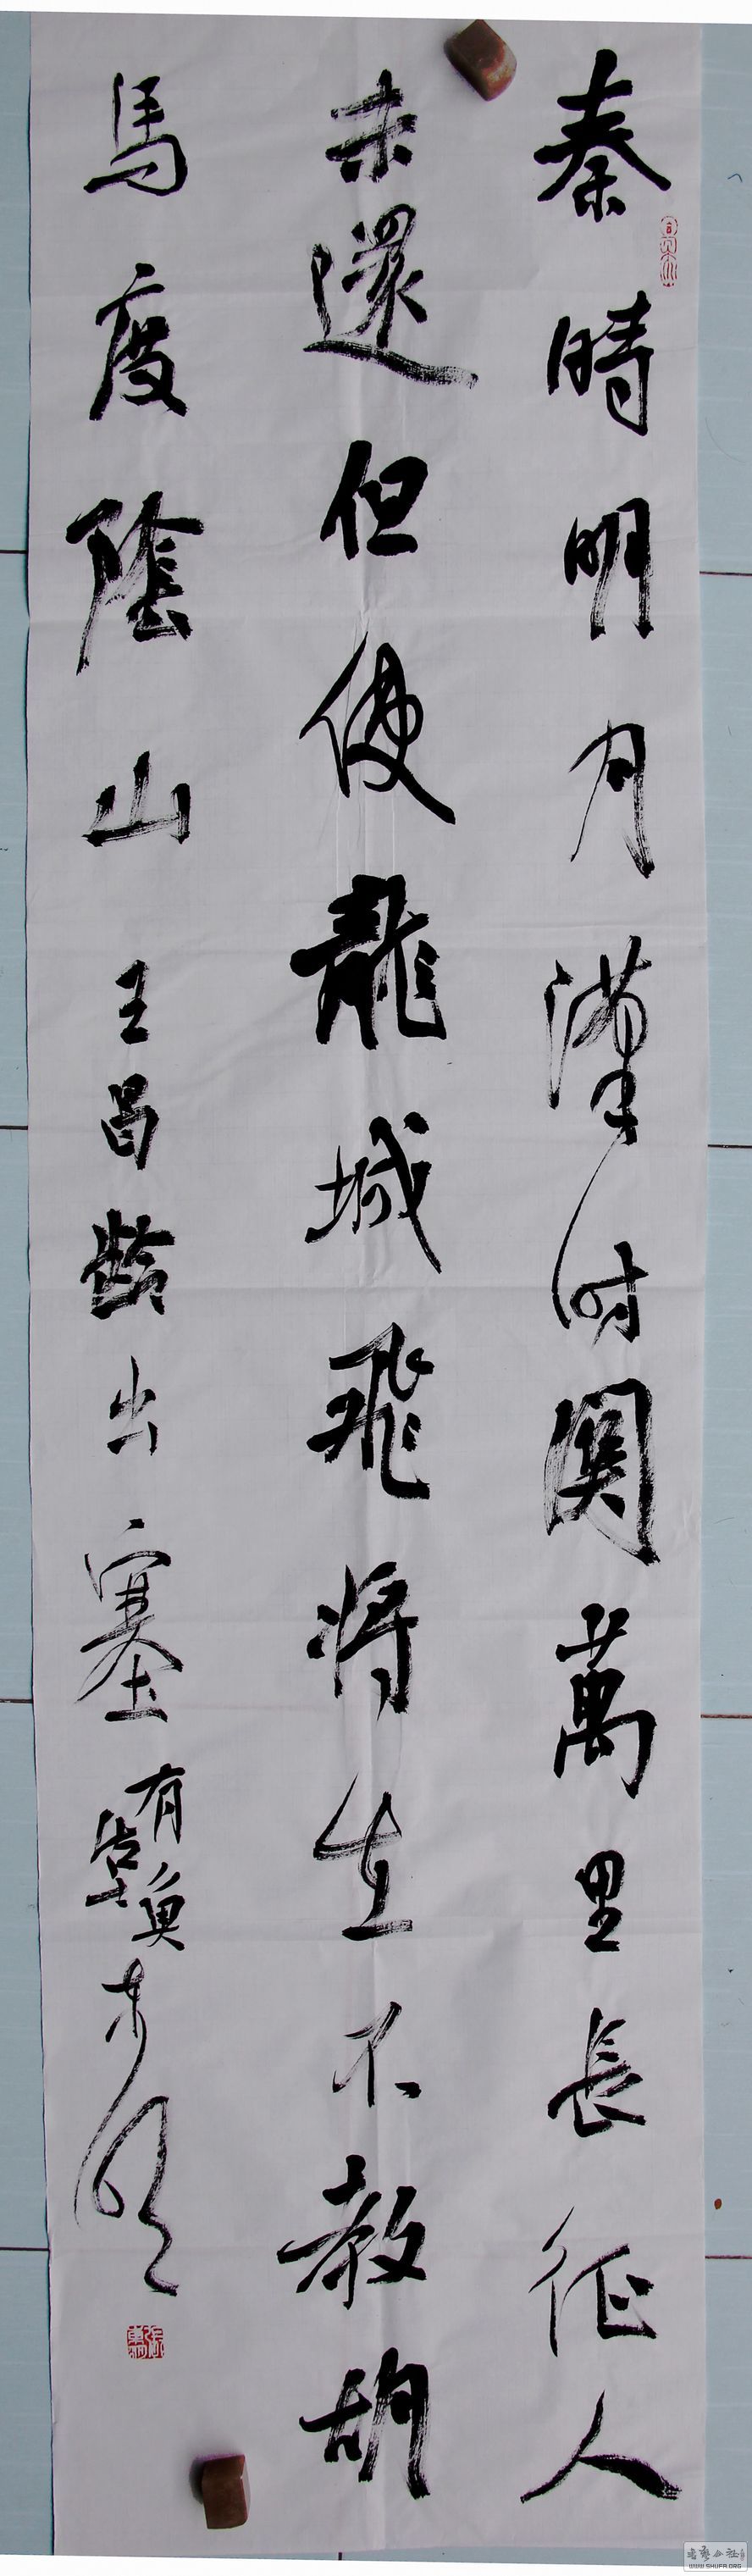 秦時明月漢时関萬里長征人
未還但使龍城飛将生不教胡
馬度陰山 王昌齡出塞
WWW.SHUFA.ORG